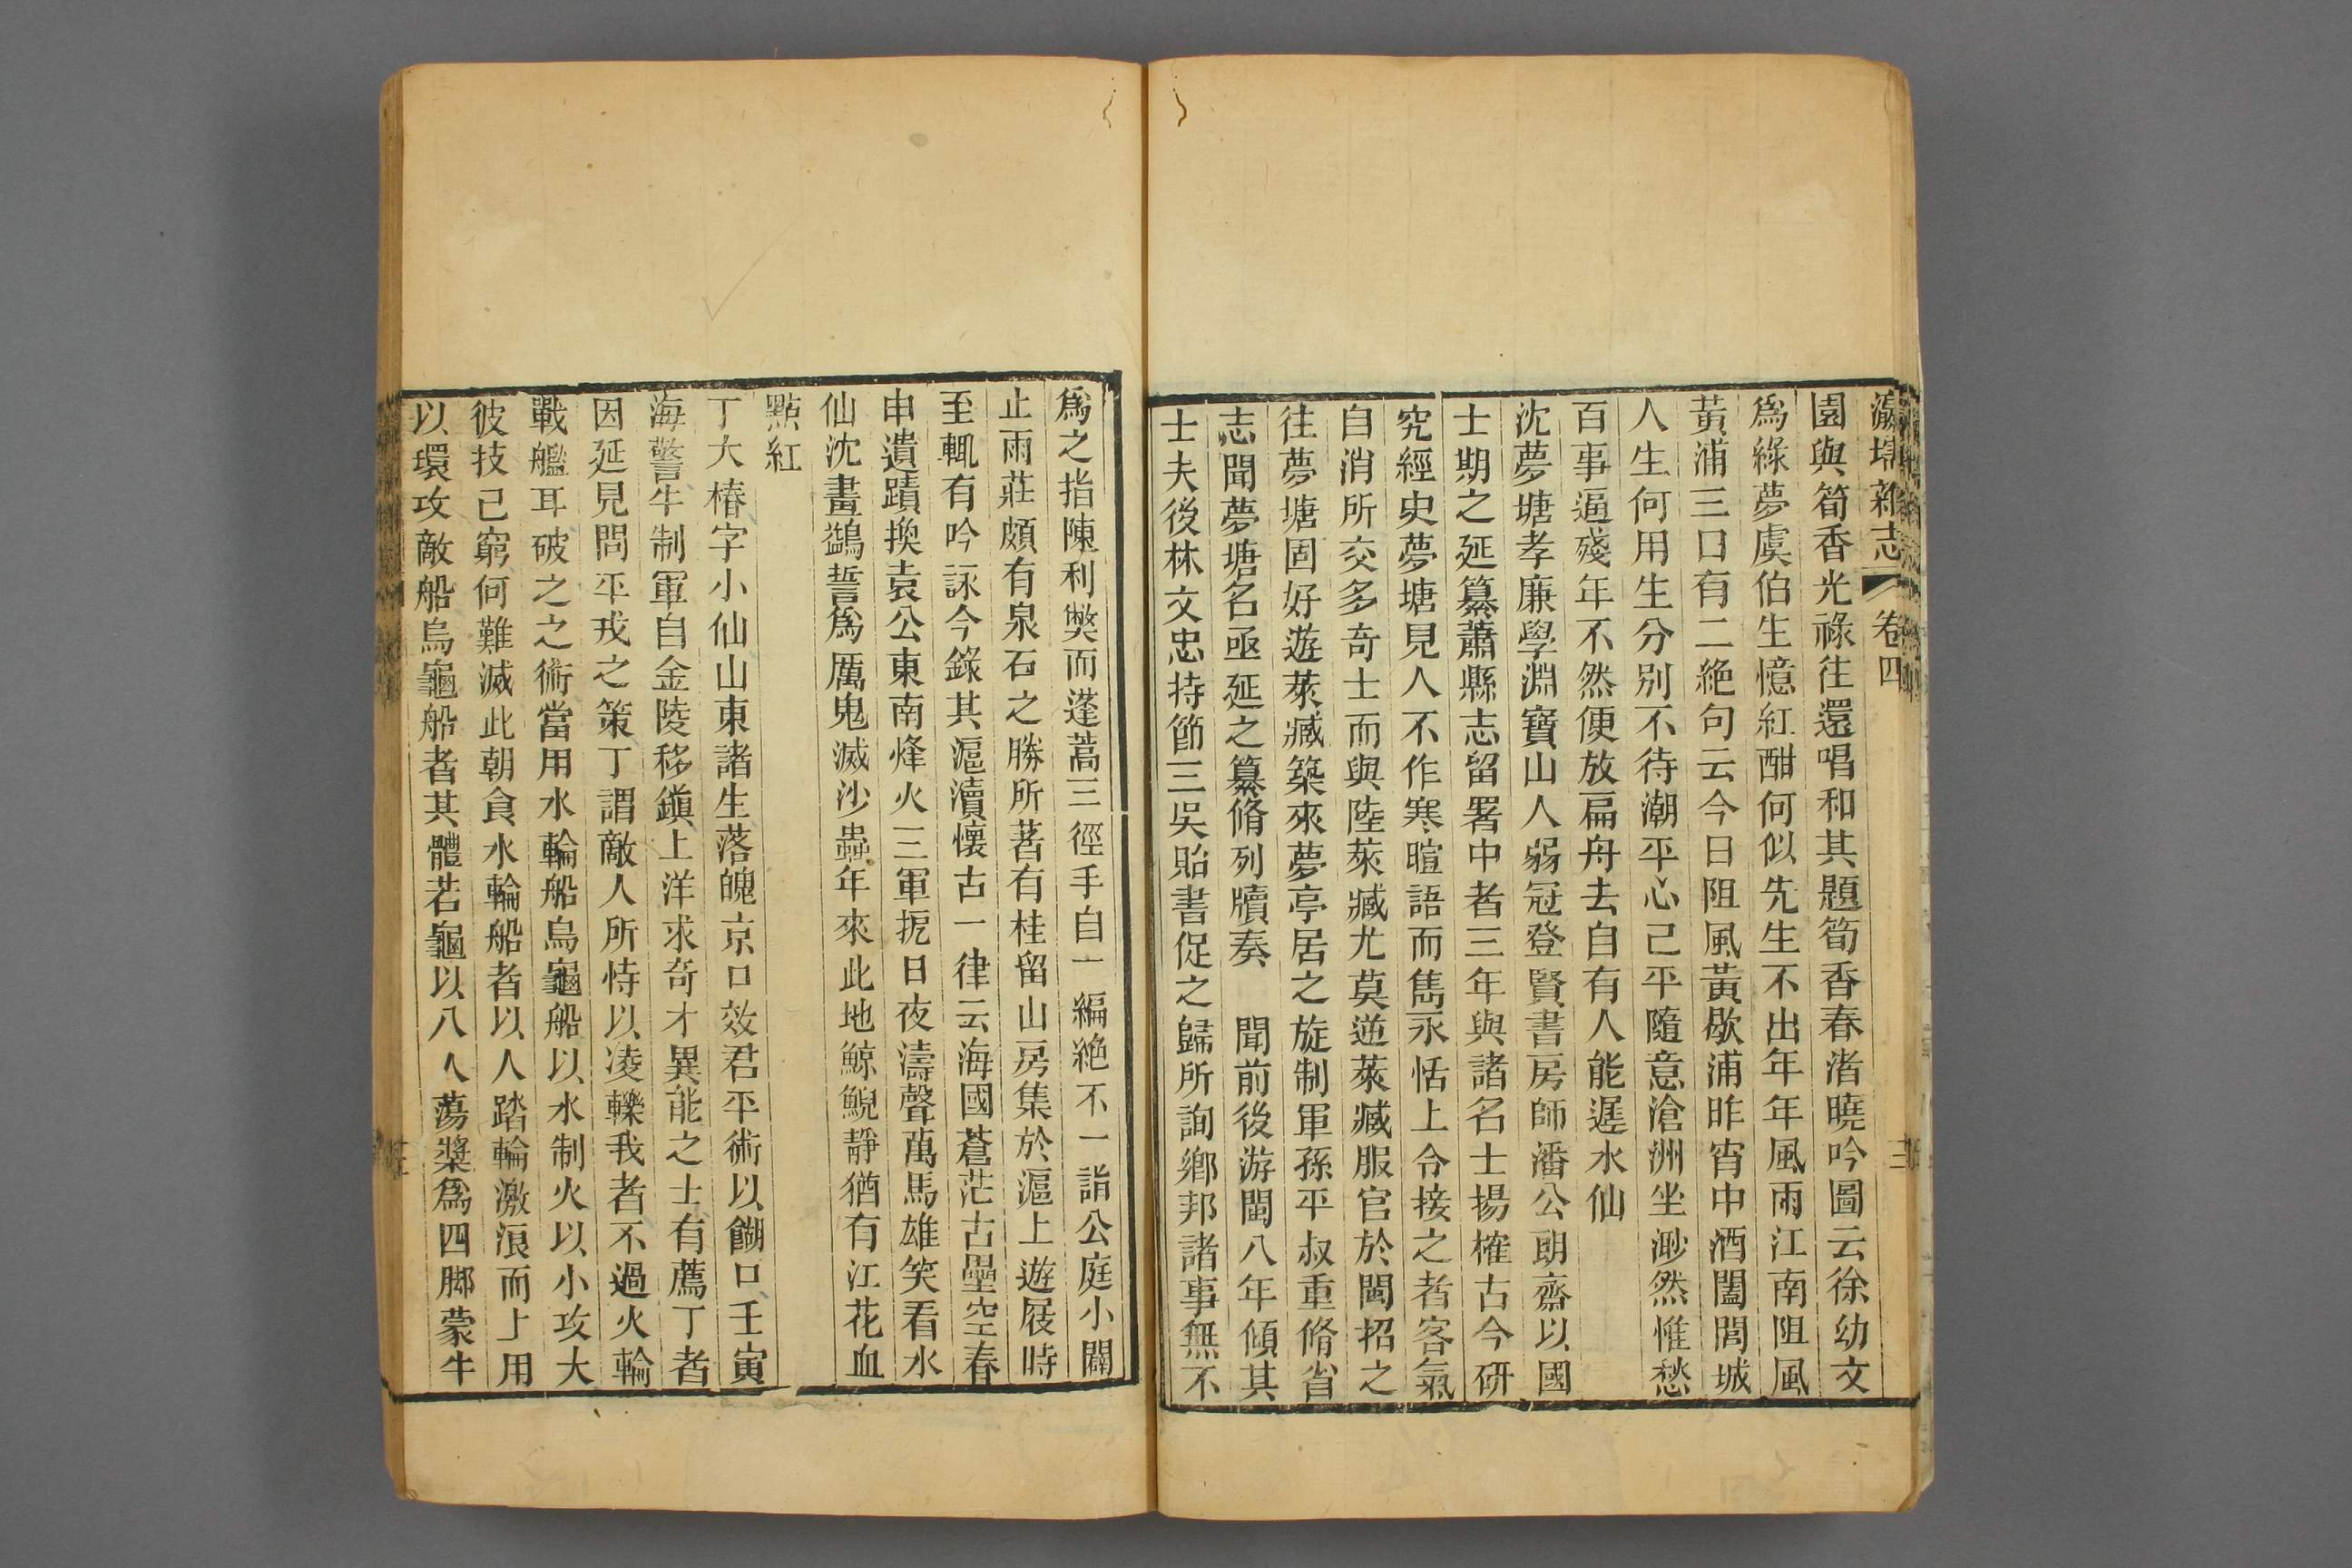 瀛壖雜志 卷四
園與筍香光祿往還唱和其題筍香春渚曉吟圖云徐幼文
爲綠夢虞伯生憶紅酣何似先生不出年年風雨江南阻風
黃浦三日有二絶句云今日阻風黃歇浦昨宵中酒闔閭城
人生何用生分別不待潮平心已平隨意滄洲坐渺然惟愁
百事逼殘年不然便放扁舟去自有人能遲水仙
沈夢塘孝廉學淵寶山人弱冠登賢書房師潘公朗齋以國
士期之延纂蕭縣志留署中者三年與諸名士揚榷古今研
究經史夢塘見人不作寒暄語而雋永恬上令接之者客氣
自消所交多奇士而與陸萊臧尤莫逆萊臧服官於閩招之
往夢塘固好遊萊臧築來夢亭居之旋制軍孫平叔重脩省
志聞夢塘名亟延之纂脩列牘奏 聞前後游閩八年傾其
士夫後林文忠持節三吳貽書促之歸所詢鄉邦諸事無不
爲之指陳利獘而蓬蒿三徑手自一編絶不一謁公庭小闢
止雨莊頗有泉石之勝所著有桂留山房集於滬上遊屐時
至輒有吟詠今錄其滬瀆懷古一律云海國蒼茫古壘空春
申遺蹟換袁公東南烽火三軍扼日夜濤聲萬馬雄笑看水
仙沈畫鷁誓爲厲鬼滅沙蟲年來此地鯨鯢靜猶有江花血
點紅
丁大椿字小仙山東諸生落魄京口效君平術以餬口壬寅
海警牛制軍自金陵移鎭上洋求奇才異能之士有薦丁者
因延見問平戎之策丁謂敵人所恃以凌轢我者不過火輪
戰艦耳破之之術當用水輪船烏龜船以水制火以小攻大
彼技已窮何難滅此朝食水輪船者以人踏輪激浪而上用
以環攻敵船烏龜船者其體若龜以八人蕩槳爲四脚蒙牛